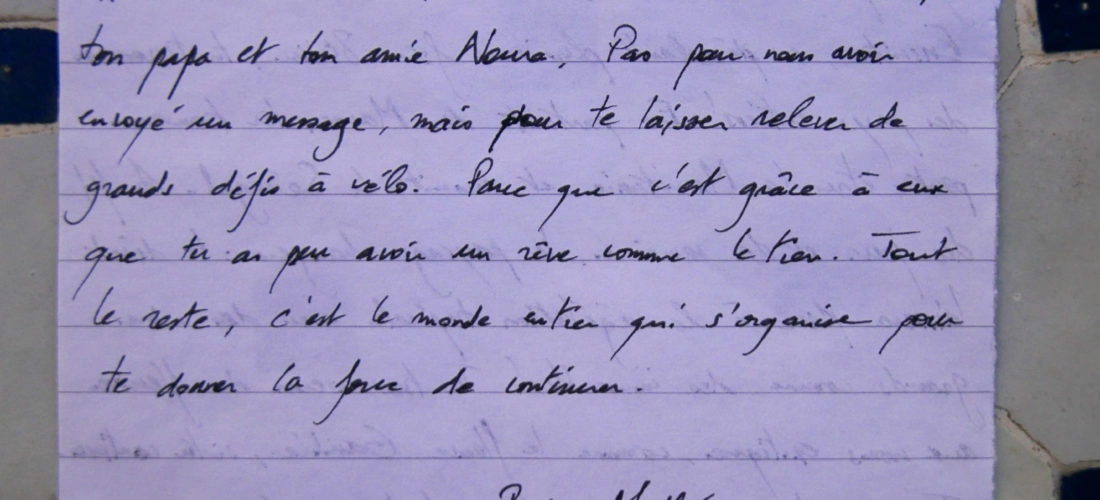 ton papa et ton amie Noura, Pas pour nous avoir
envoyé un message, mais pour te laisser relever de
grands défis à vélo. Parce que c'est grâce à eux
que tu as pu avoir un rêve comme le tien. Tout
le reste, c'est le monde entier qui s'organise pour
te donner la force de continuer.